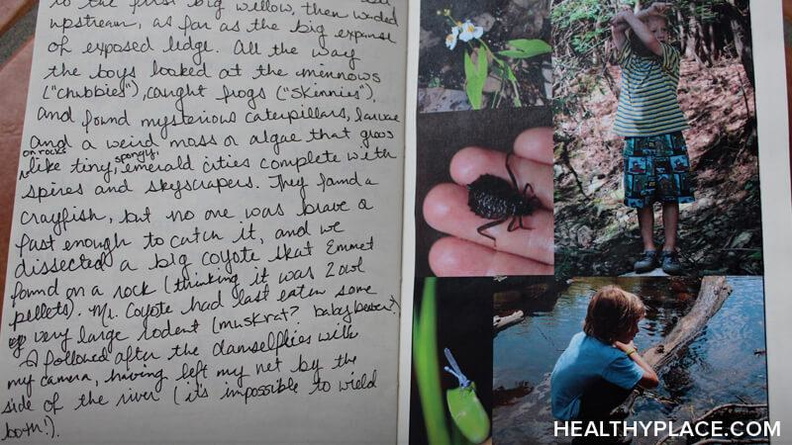 to the first big willow, then waded
upstream, as far as the big expanse
of exposed ledge. All the way
the boys looked at the minnows
("chubbies"), caught frogs ("skinnies"),
and found mysterious caterpillars, larvae
and a weird moss or algae that grows
on rocks
like tiny, spongy, emerald cities complete with
spires and skyscrapers. They found a
crayfish, but no one was brave or
fast enough to catch it, and we
dissected a big coyote skat Emmet
found on a rock (thinking it was 2 owl
pellets). Mr. Coyote had last eaten some
very large rodent (muskrat? baby beaver?)
I followed after the damselflies with
my camera, having left my net by the
side of the river (it's impossible to wield
both!).
HEALTHYPLACE.COM